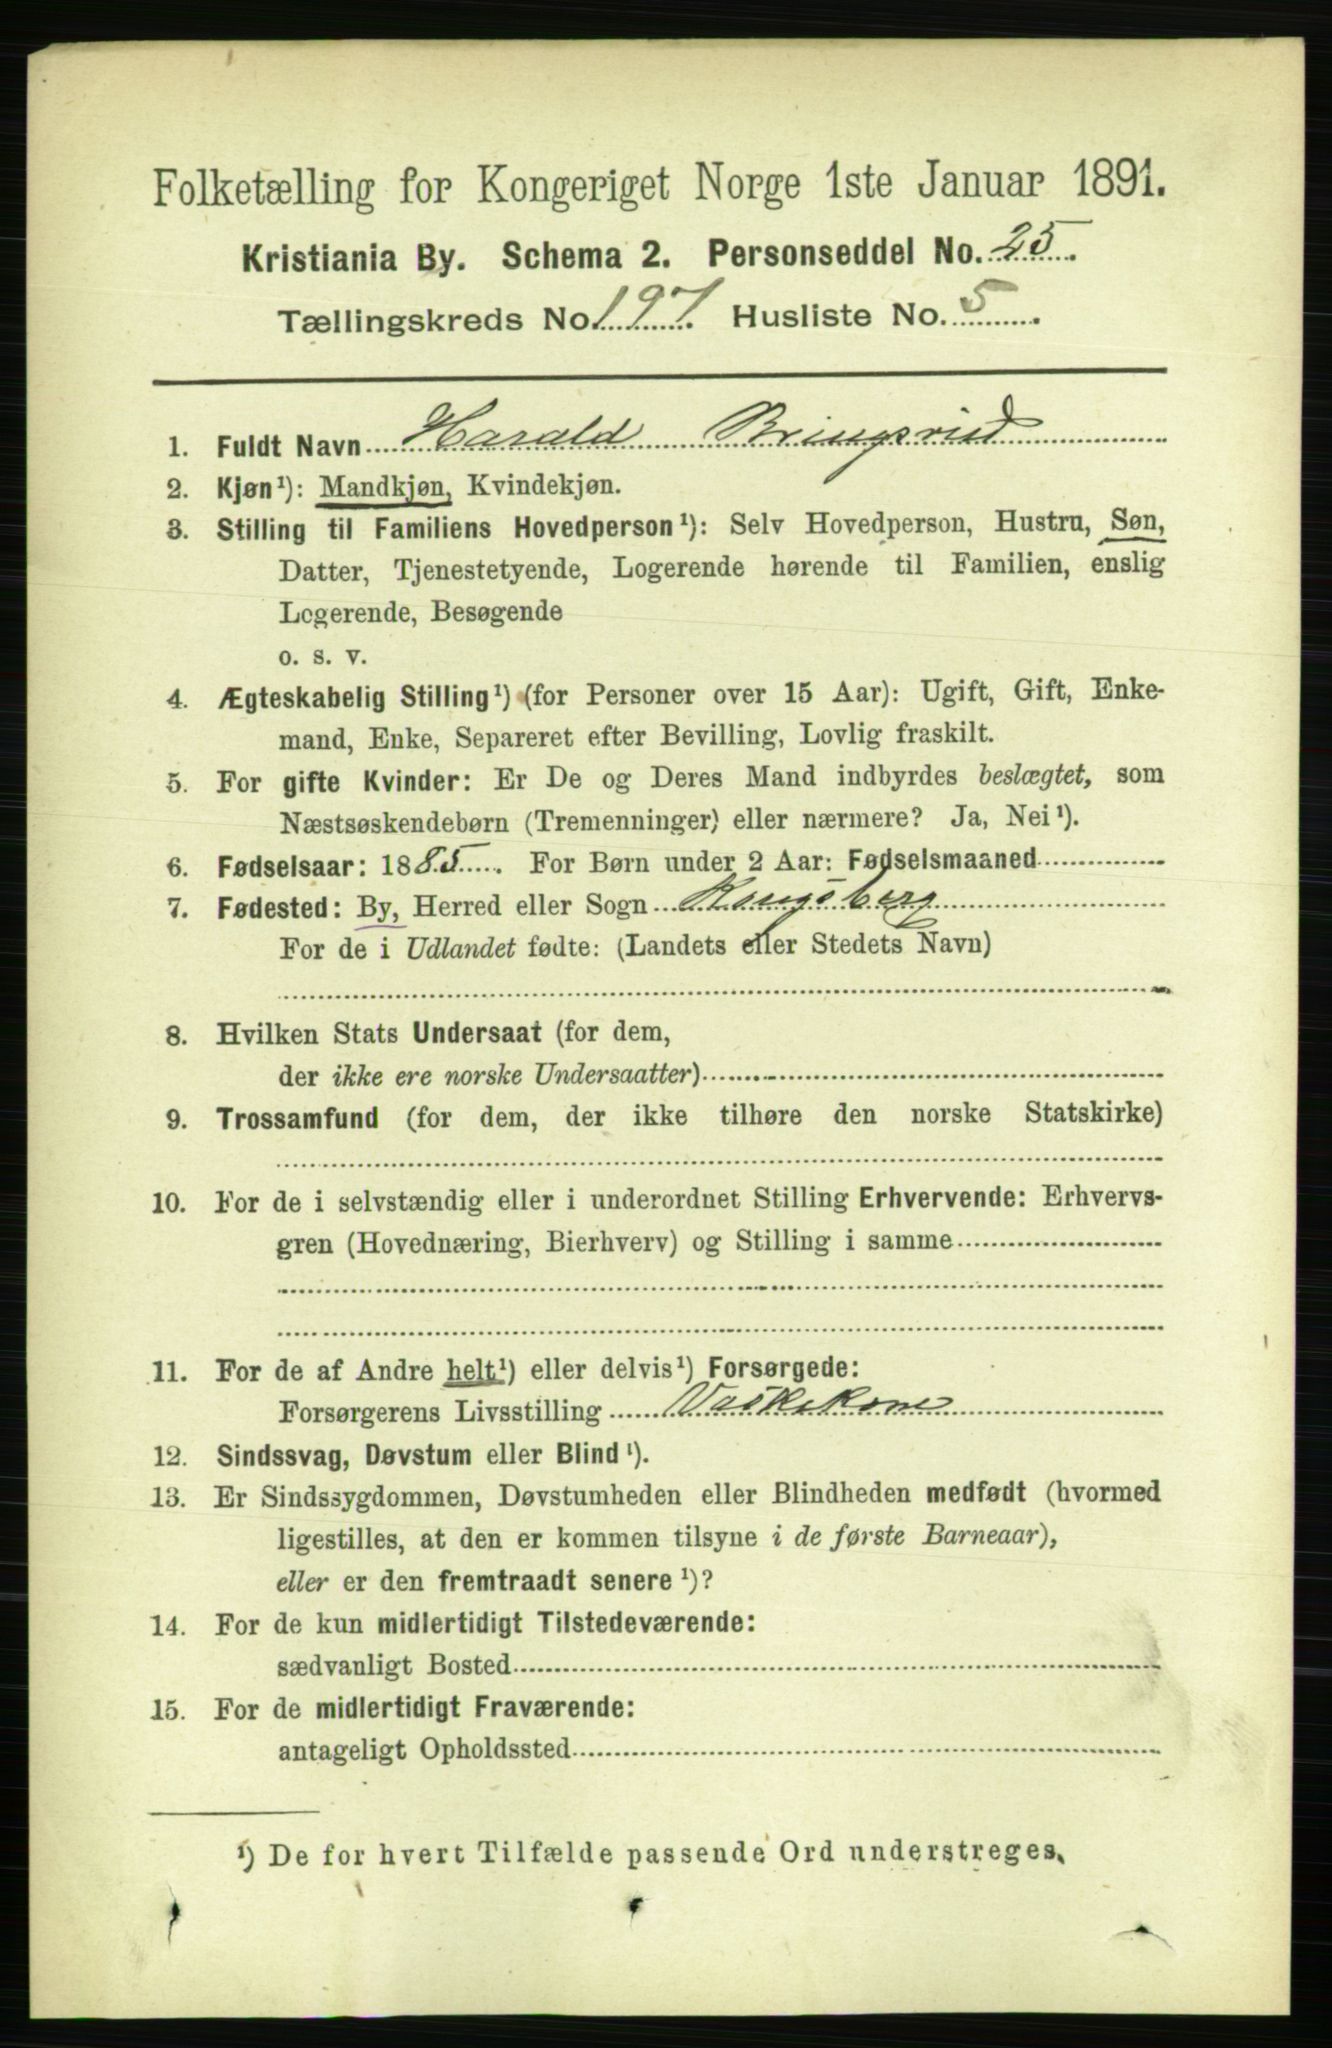 Folketælling for Kongeriget Norge 1ste Januar 1891.
Kristiania By. Schema 2. Personseddel No. 25.
Tællingskreds No. 197. Husliste No. 5.
1. Fuldt Navn Harald Bringsvid
2. Kjøn¹): Mandkjøn, Kvindekjøn.
3. Stilling til Familiens Hovedperson¹): Selv Hovedperson, Hustru, Søn,
Datter, Tjenestetyende, Logerende hørende til Familien, enslig
Logerende, Besøgende
o. s. v.
4. Ægteskabelig Stilling¹) (for Personer over 15 Aar): Ugift, Gift, Enke-
mand, Enke, Separeret efter Bevilling, Lovlig fraskilt.
5. For gifte Kvinder: Er De og Deres Mand indbyrdes beslægtet, som
Næstsøskendebørn (Tremenninger) eller nærmere? Ja, Nei¹).
6. Fødselsaar: 1885. For Børn under 2 Aar: Fødselsmaaned
7. Fødested: By, Herred eller Sogn Kongsberg
For de i Udlandet fødte: (Landets eller Stedets Navn)
8. Hvilken Stats Undersaat (for dem,
der ikke ere norske Undersaatter)
9. Trossamfund (for dem, der ikke tilhøre den norske Statskirke)
10. For de i selvstændig eller i underordnet Stilling Erhvervende: Erhvervs-
gren (Hovednæring, Bierhverv) og Stilling i samme
11. For de af Andre helt¹) eller delvis¹) Forsørgede:
Forsørgerens Livsstilling Vaskekone
12. Sindssvag, Døvstum eller Blind¹).
13. Er Sindssygdommen, Døvstumheden eller Blindheden medfødt (hvormed
ligestilles, at den er kommen tilsyne i de første Barneaar),
eller er den fremtraadt senere¹)?
14. For de kun midlertidigt Tilstedeværende:
sædvanligt Bosted
15. For de midlertidigt Fraværende:
antageligt Opholdssted
¹) De for hvert Tilfælde passende Ord understreges.